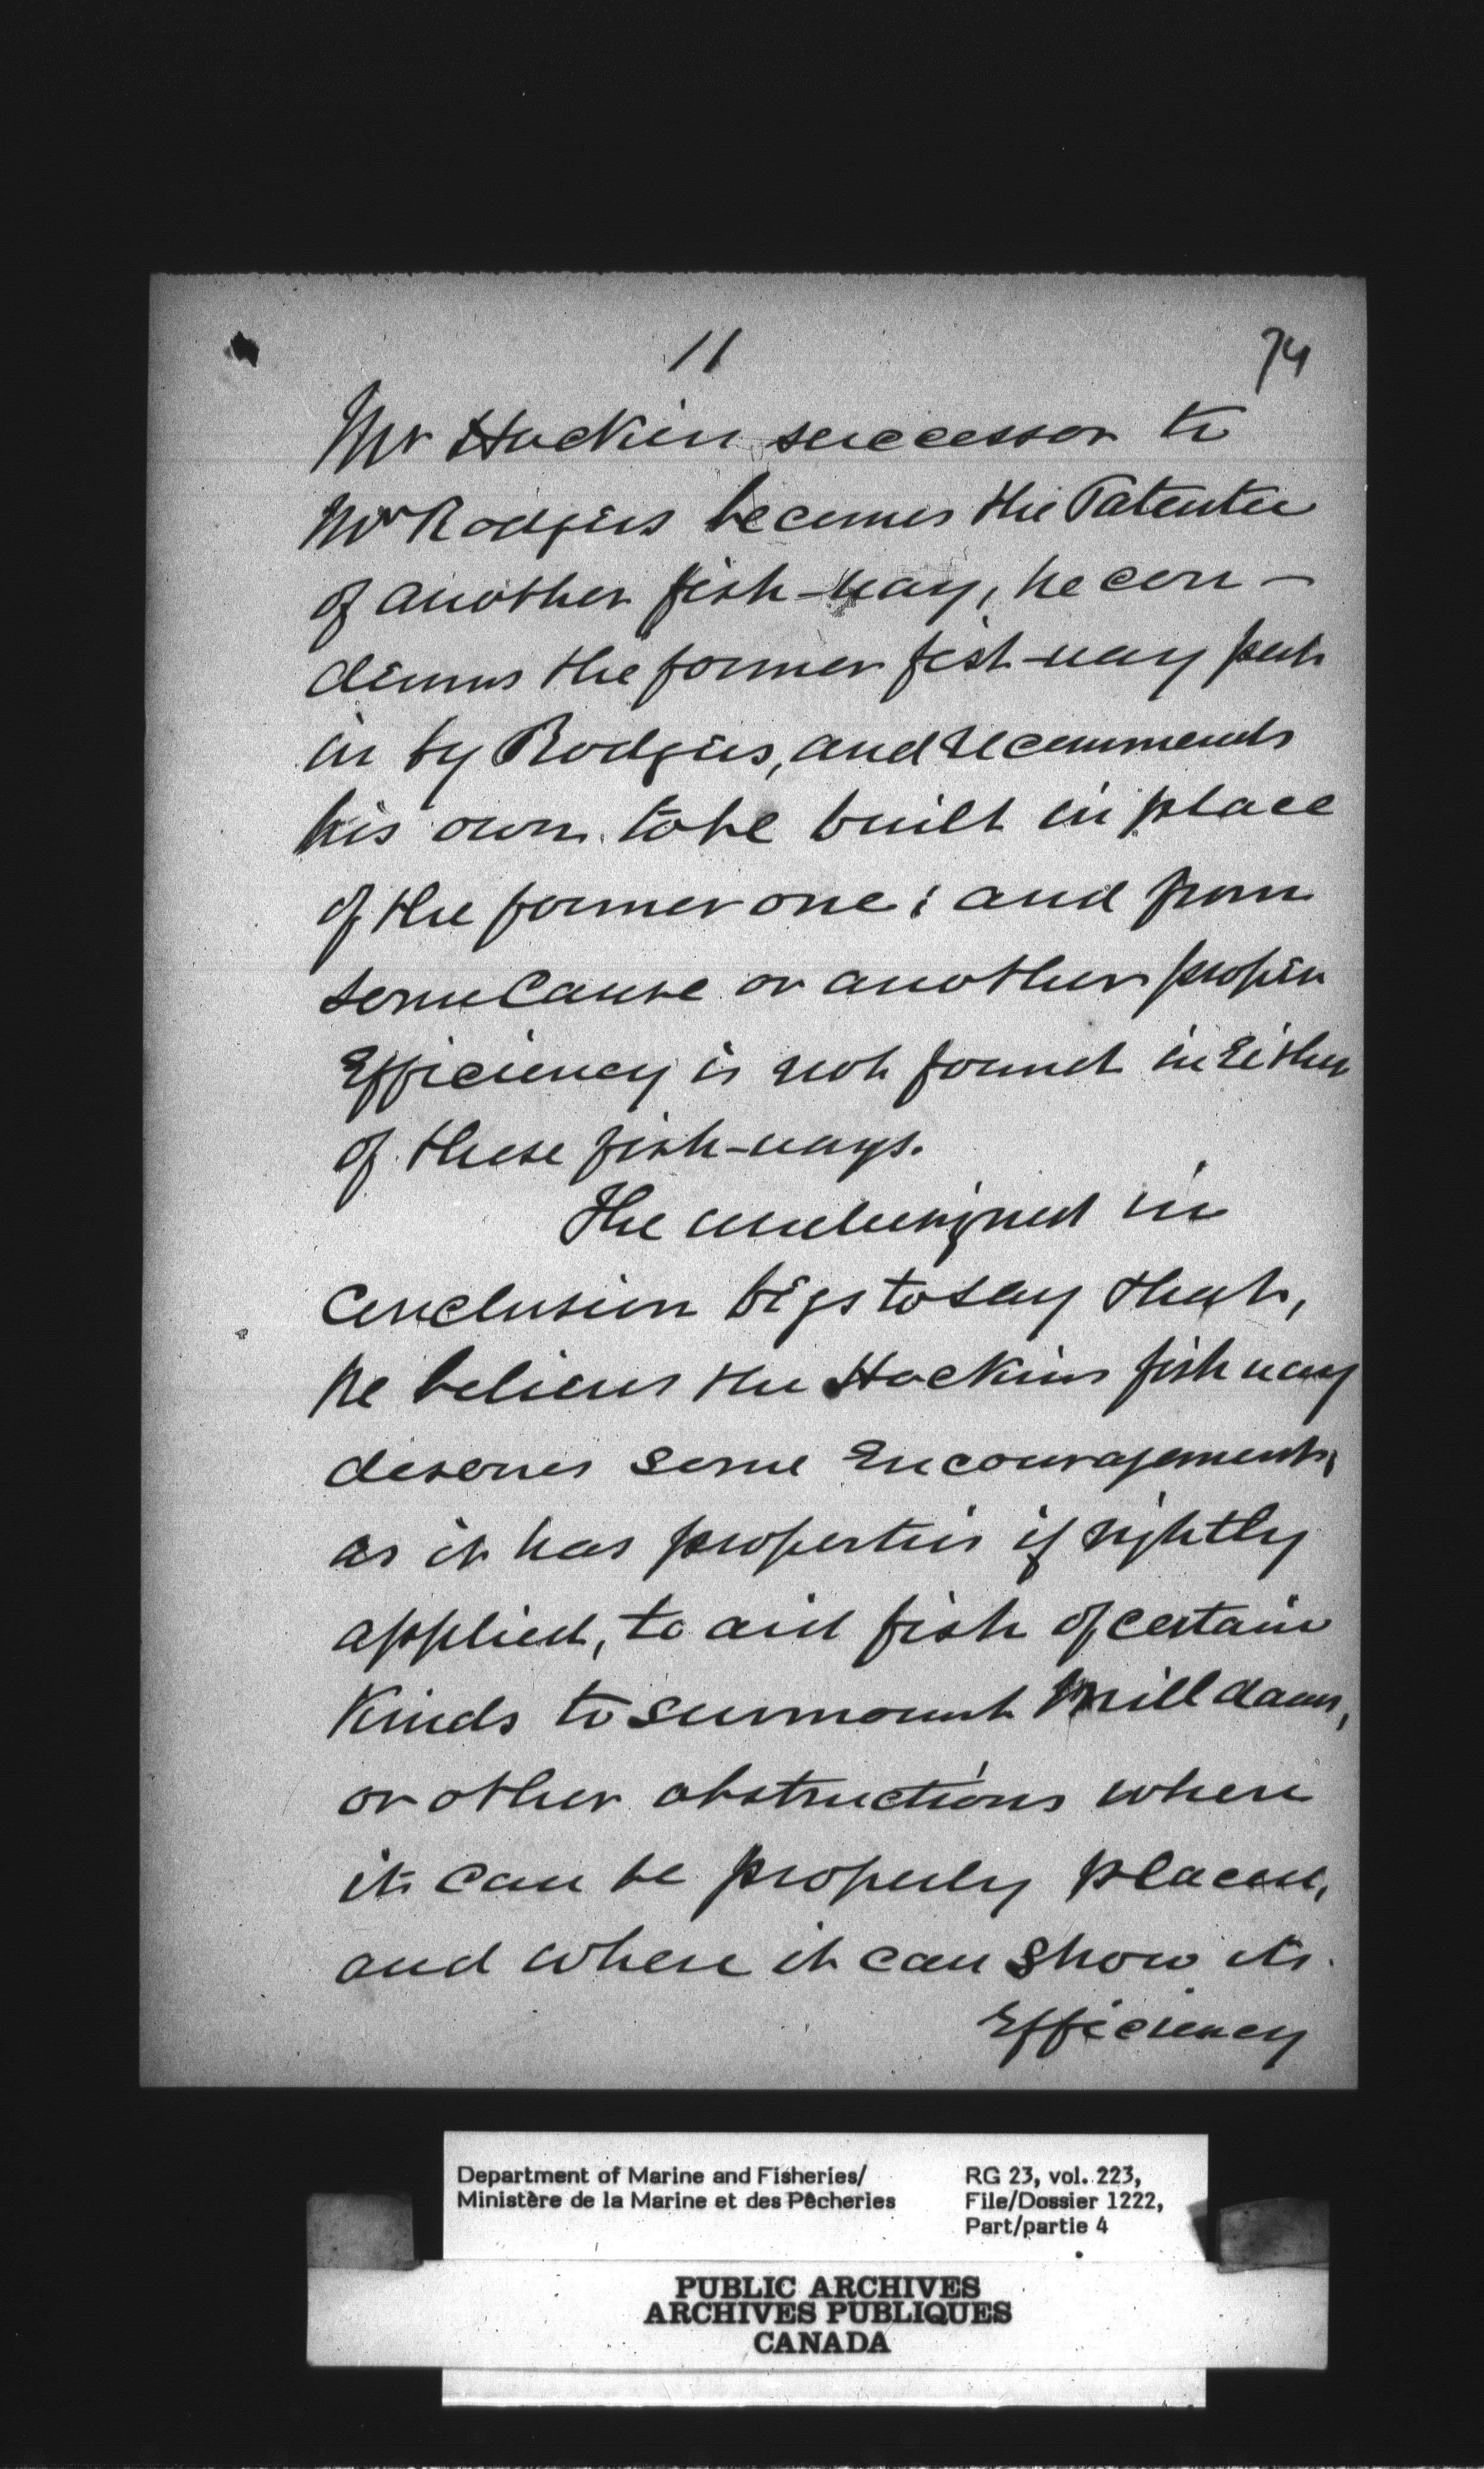 11
74
Mr Hockin successor to
Mr Rodgers becomes the Patentee
of another fish-way, he con-
demns the former fish-way put
in by Rodgers, and recommends
his own to be built in place
of the former one; and from
some Cause or another proper
Efficiency is not found in Either
of these fish-ways.
The undersigned in
Conclusion begs to say that,
he believes the Hockins fish way
deserves some Encouragement,
as it has properties if rightly
applied, to aid fish of certain
Kinds to surmount Mill dams,
or other obstructions where
it can be properly placed,
and where it can show its
Efficiency
Department of Marine and Fisheries/
Ministère de la Marine et des Pêcheries
RG 23, vol. 223,
File/Dossier 1222,
Part/partie 4
PUBLIC ARCHIVES
ARCHIVES PUBLIQUES
CANADA